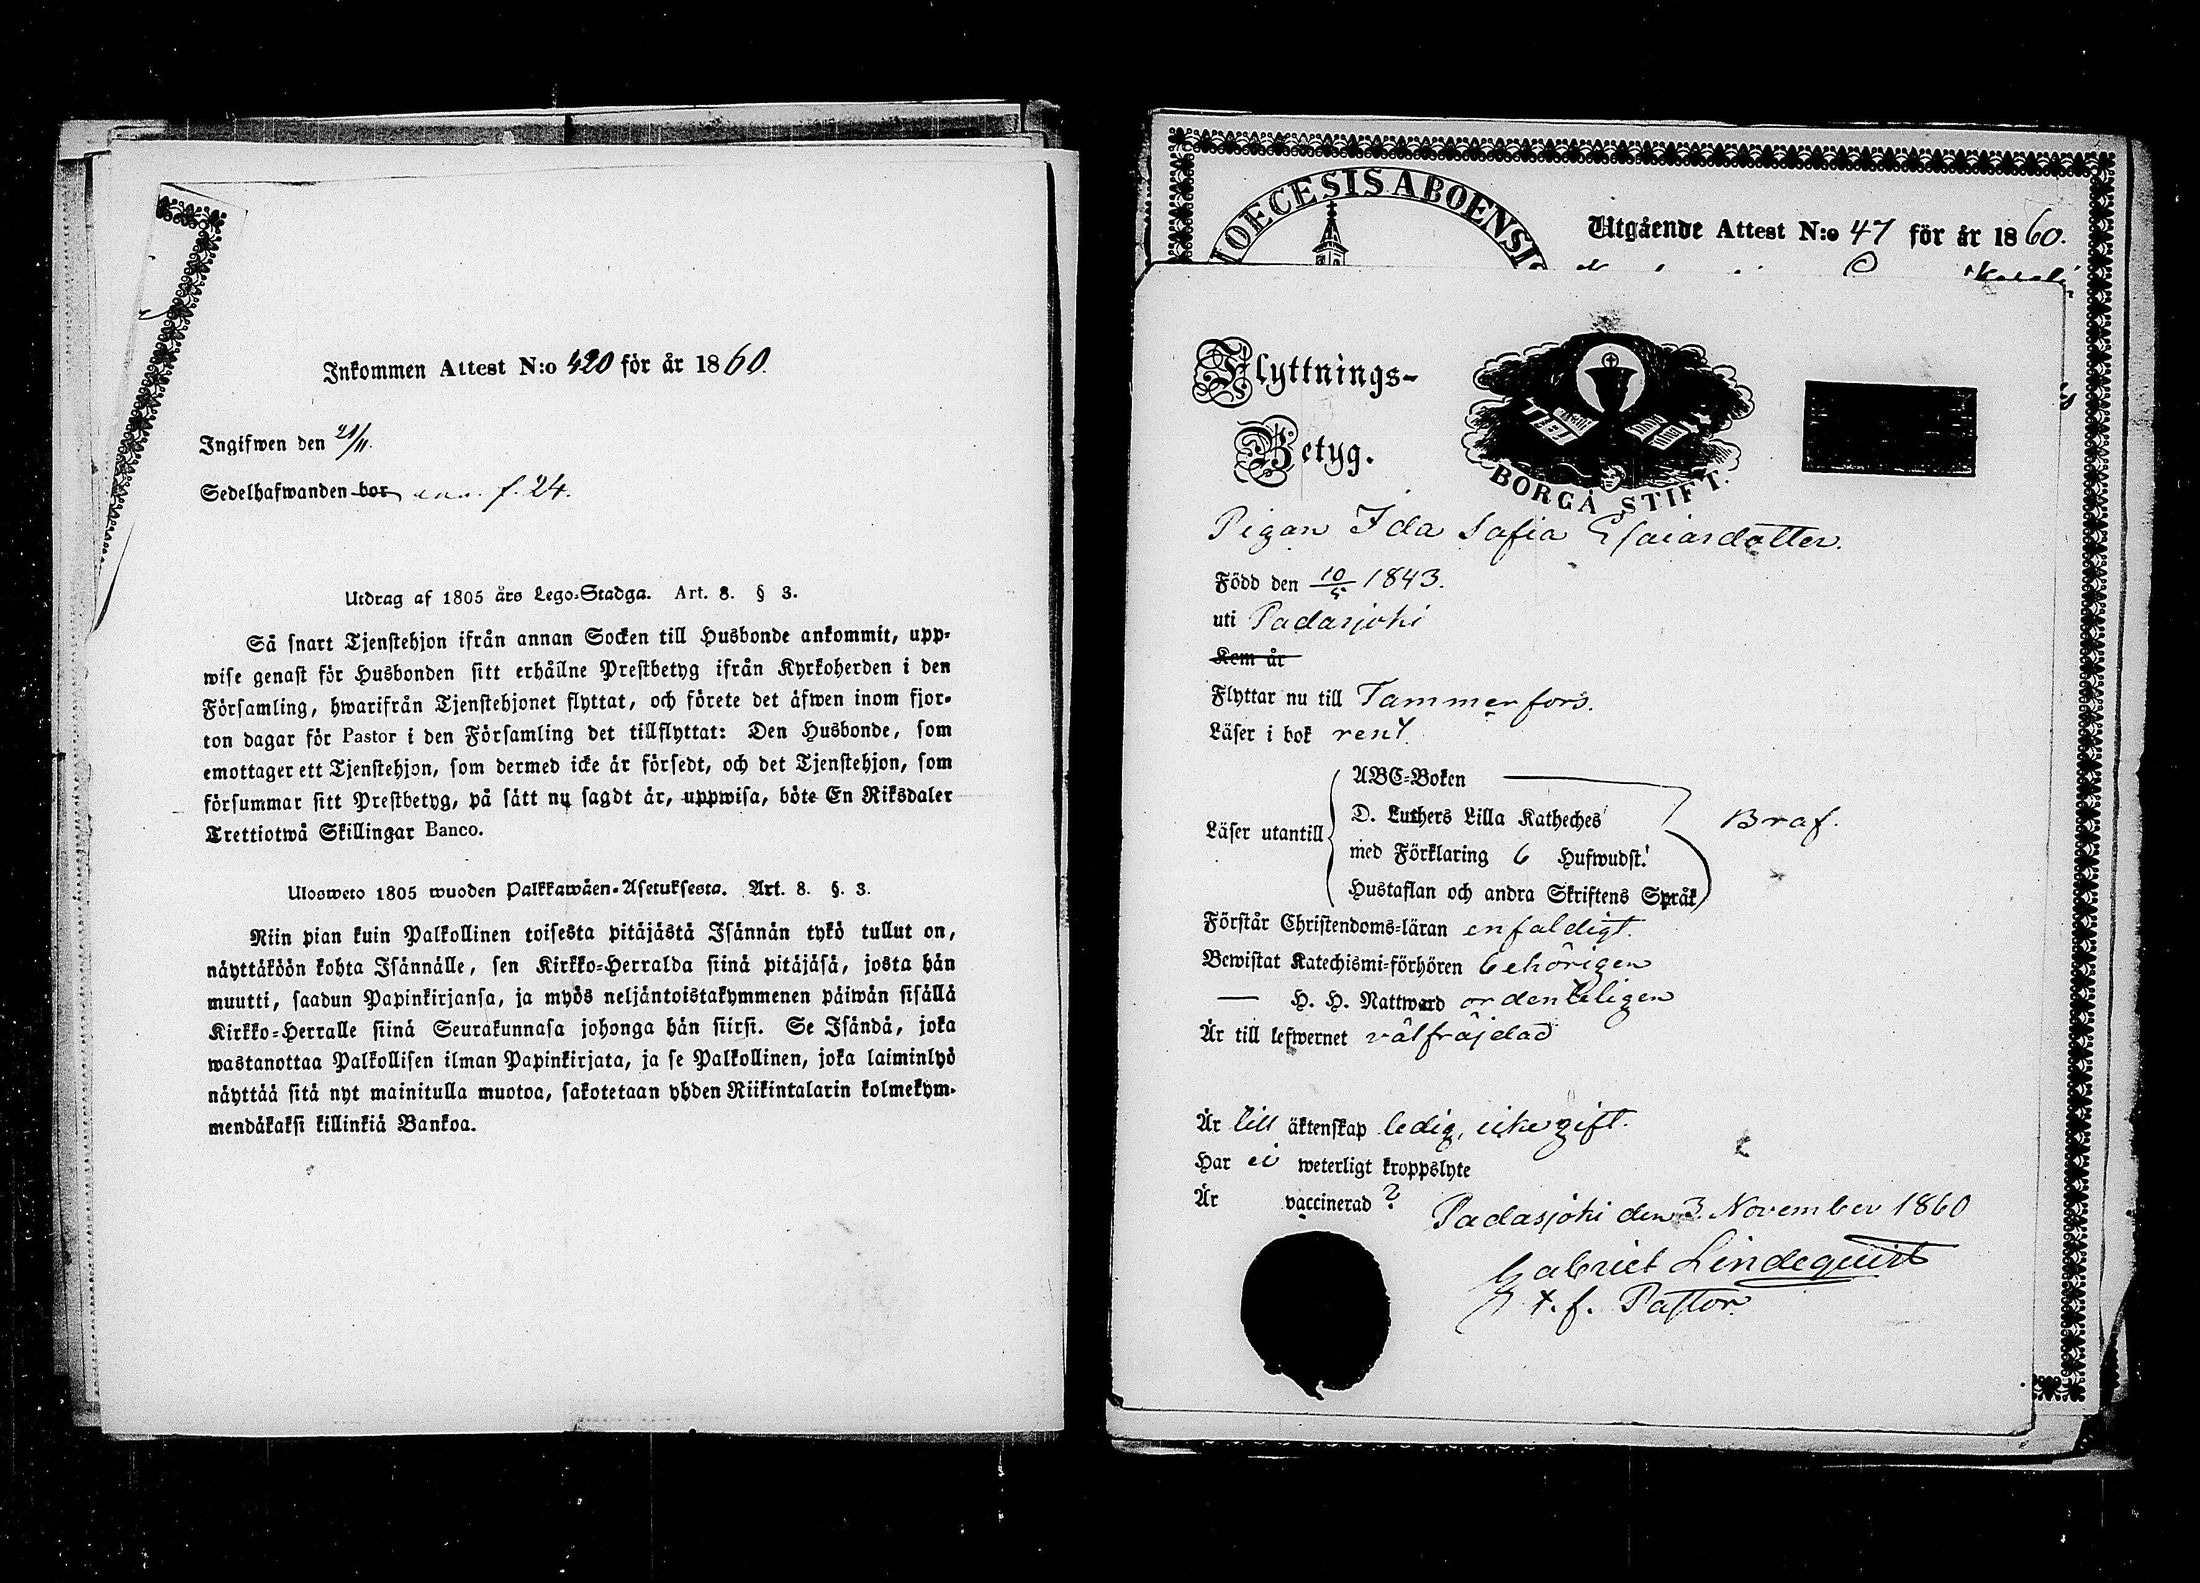 Inkommen Attest N:o 420 för år 1860.
Ingifwen den 21/11.
Sedelhafwanden bor f. 24.
Utdrag af 1805 års Lego-Stadga. Art. 8. § 3.
Så snart Tjenstehjon ifrån annan Socken till Husbonde ankommit, upp-
wise genast för Husbonden sitt erhållne Prestbetyg ifrån Kyrkoherden i den
Församling, hwarifrån Tjenstehjonet flyttat, och förete det äfwen inom fjor-
ton dagar för Pastor i den Församling det tillflyttat: Den Husbonde, som
emottager ett Tjenstehjon, som dermed icke är försedt, och det Tjenstehjon, som
försummar sitt Prestbetyg, på sätt nu sagdt är, uppwisa, böte En Riksdaler
Trettiotwå Skillingar Banco.
Ulosweto 1805 wuoden Palkkawäen-Asetuksesta. Art. 8. §. 3.
Niin pian kuin Palkollinen toisesta pitäjästä Isännän tykö tullut on,
näyttäköön kohta Isännälle, sen Kirkko-Herralda siinä pitäjäsä, josta hän
muutti, saadun Papinkirjansa, ja myös neljäntoistakymmenen päiwän sisällä
Kirkko-Herralle siinä Seurakunnasa johonga hän siirsi. Se Isändä, joka
wastanottaa Palkollisen ilman Papinkirjata, ja se Palkollinen, joka laiminlyö
näyttää sitä nyt mainitulla muotoa, sakotetaan yhden Riikintalarin kolmekym-
mendäkaksi killinkiä Bankoa.
IOECESIS ABOENSI
Utgående Attest N:o 47 för år 1860.
Flyttnings-
Betyg.
BORGÅ STIFT.
Pigan Ida Sofia Esaiasdotter.
Född den 10/5 1843.
uti Padasjoki
Kom år
Flyttar nu till Tammerfors.
Läser i bok rent.
Läser utantill
ABC-Boken
D. Luthers Lilla Kateches
med Förklaring 6 Hufwudst.
Hustaflan och andra Skriftens Språk
Braf.
Förstår Christendoms-läran enfaldigt.
Bewistat Katechismi-förhören behörigen
— H. H. Nattward ordenteligen
Är till lefwernet välfräjdad
Är till äktenskap ledig, icke gift.
Har ei weterligt kroppslyte
Är vaccinerad?
Padasjoki den 3. November 1860
Gabriel Lindequist
t. f. Pastor.